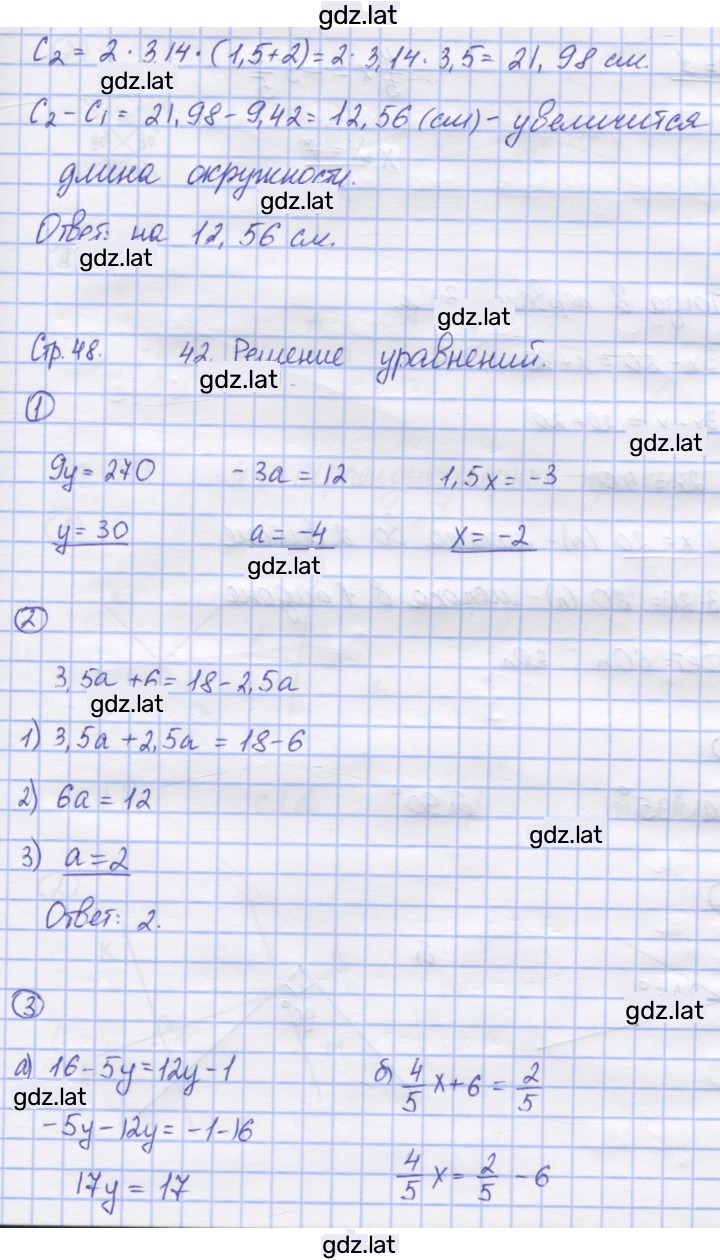 gdz.lat
C₂ = 2 · 3.14 · (1,5+2) = 2 · 3,14 · 3,5 = 21,98 см.
gdz.lat
C₂ - C₁ = 21,98 - 9,42 = 12,56 (см) - увеличится
длина окружности.
gdz.lat
Ответ: на 12,56 см.
gdz.lat
gdz.lat
Стр. 48. 42. Решение уравнений.
gdz.lat
1
gdz.lat
9y = 270 -3a = 12 1,5x = -3
y = 30 a = -4 x = -2
gdz.lat
2
3,5a + 6 = 18 - 2,5a
gdz.lat
1) 3,5a + 2,5a = 18 - 6
2) 6a = 12
gdz.lat
3) a = 2
Ответ: 2.
3
gdz.lat
а) 16 - 5y = 12y - 1 б) 4/5 x + 6 = 2/5
gdz.lat
-5y - 12y = -1 - 16
17y = 17 4/5 x = 2/5 - 6
gdz.lat